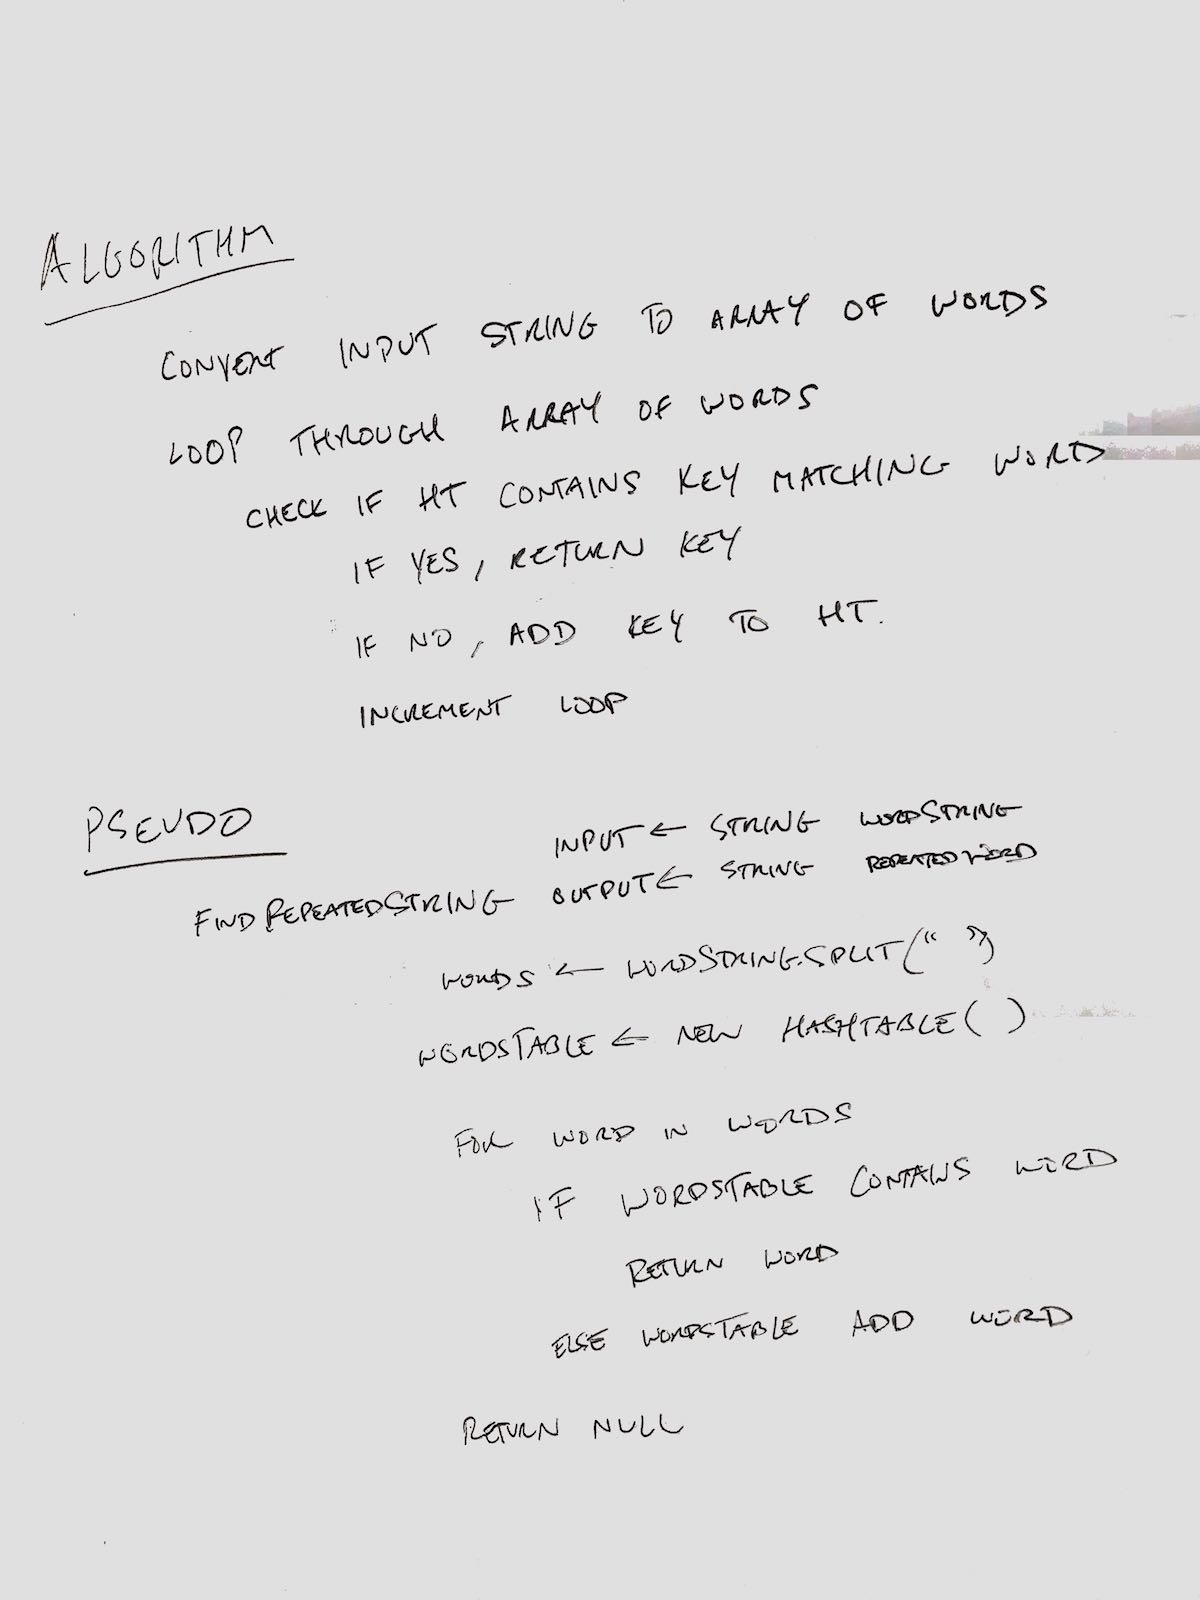 ALGORITHM
CONVERT INPUT STRING TO ARRAY OF WORDS
LOOP THROUGH ARRAY OF WORDS
CHECK IF HT CONTAINS KEY MATCHING WORD
IF YES, RETURN KEY
IF NO, ADD KEY TO HT.
INCREMENT LOOP
PSEUDO
INPUT ← STRING WORDSTRING
FINDREPEATEDSTRING OUTPUT ← STRING REPEATEDWORD
WORDS ← WORDSTRING.SPLIT(" ")
WORDSTABLE ← NEW HASHTABLE( )
FOR WORD IN WORDS
IF WORDSTABLE CONTAINS WORD
RETURN WORD
ELSE WORDSTABLE ADD WORD
RETURN NULL